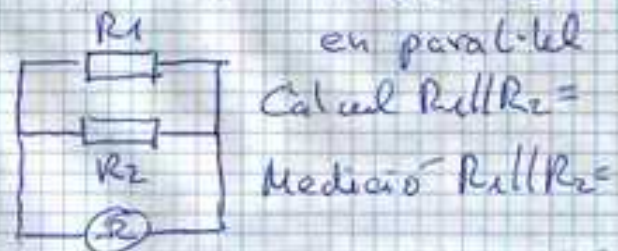 R1
en paral·lel
Càlcul R1//R2=
R2
Medició R1//R2=
Ω